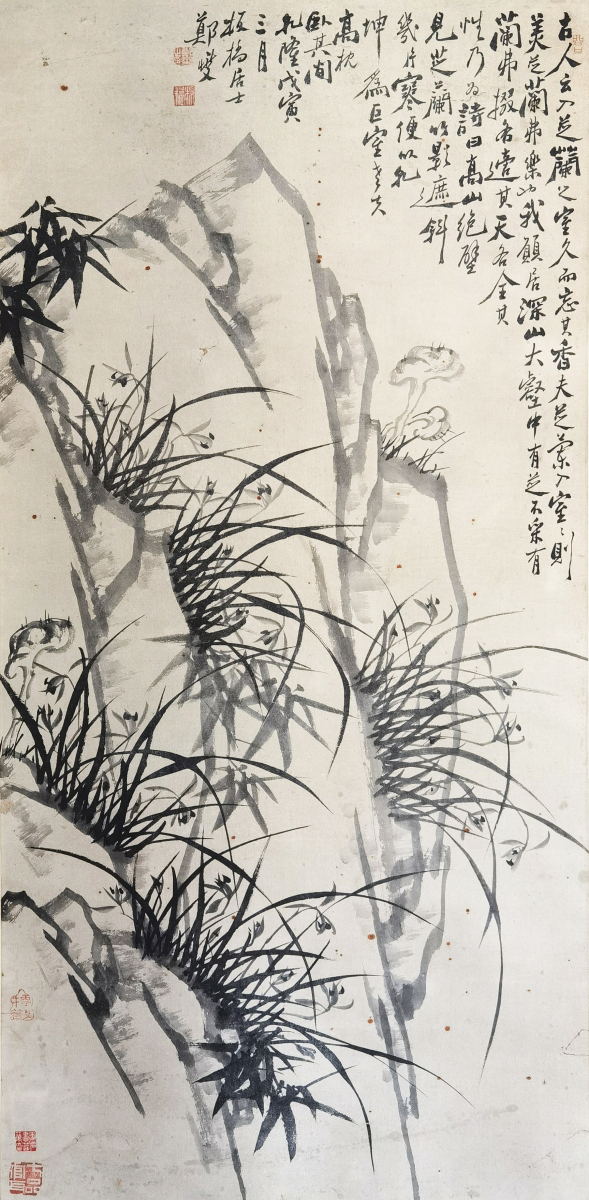 古人云入芝蘭之室久而忘其香夫芝蘭入室〻則
美芝蘭弗樂也我願居深山大壑中有芝不采有
蘭弗掇各適其天各全其
性乃為詩曰高山絕壁
見芝蘭竹影遮斜
幾片寒便以乾
坤為巨室老夫
高枕
臥其間
乾隆戊寅
三月
板橋居士
鄭燮